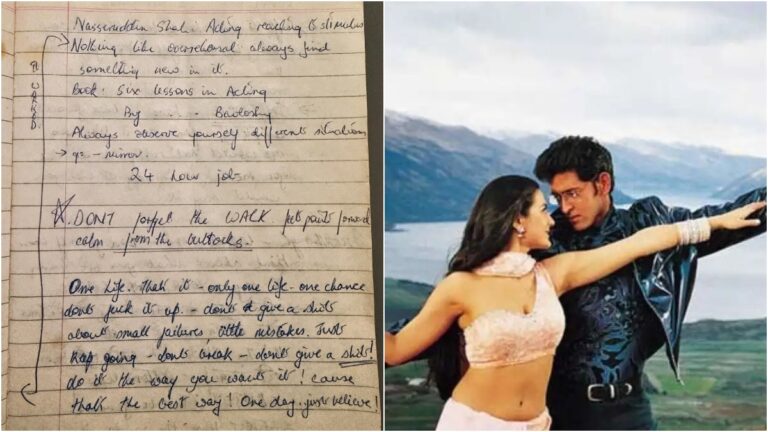 Nasseruddin Shah: Acting reaching to stimulus
Nothing like overrehersal always find
something new in it.
Book: Six lessons in Acting
By . . . .
Always observe yourself different situations
→ eg - mirror.
24 hour job
DONT forget the WALK feet points forward
calm, from the buttocks.
One life. that's it - only one life - one chance
dont fuck it up - dont give a shits
about small failures, little mistakes. Just
Keep going - dont break - dont give a shits!
do it the way you wants it! cause
that's the best way! One day. just believe!
WORKED